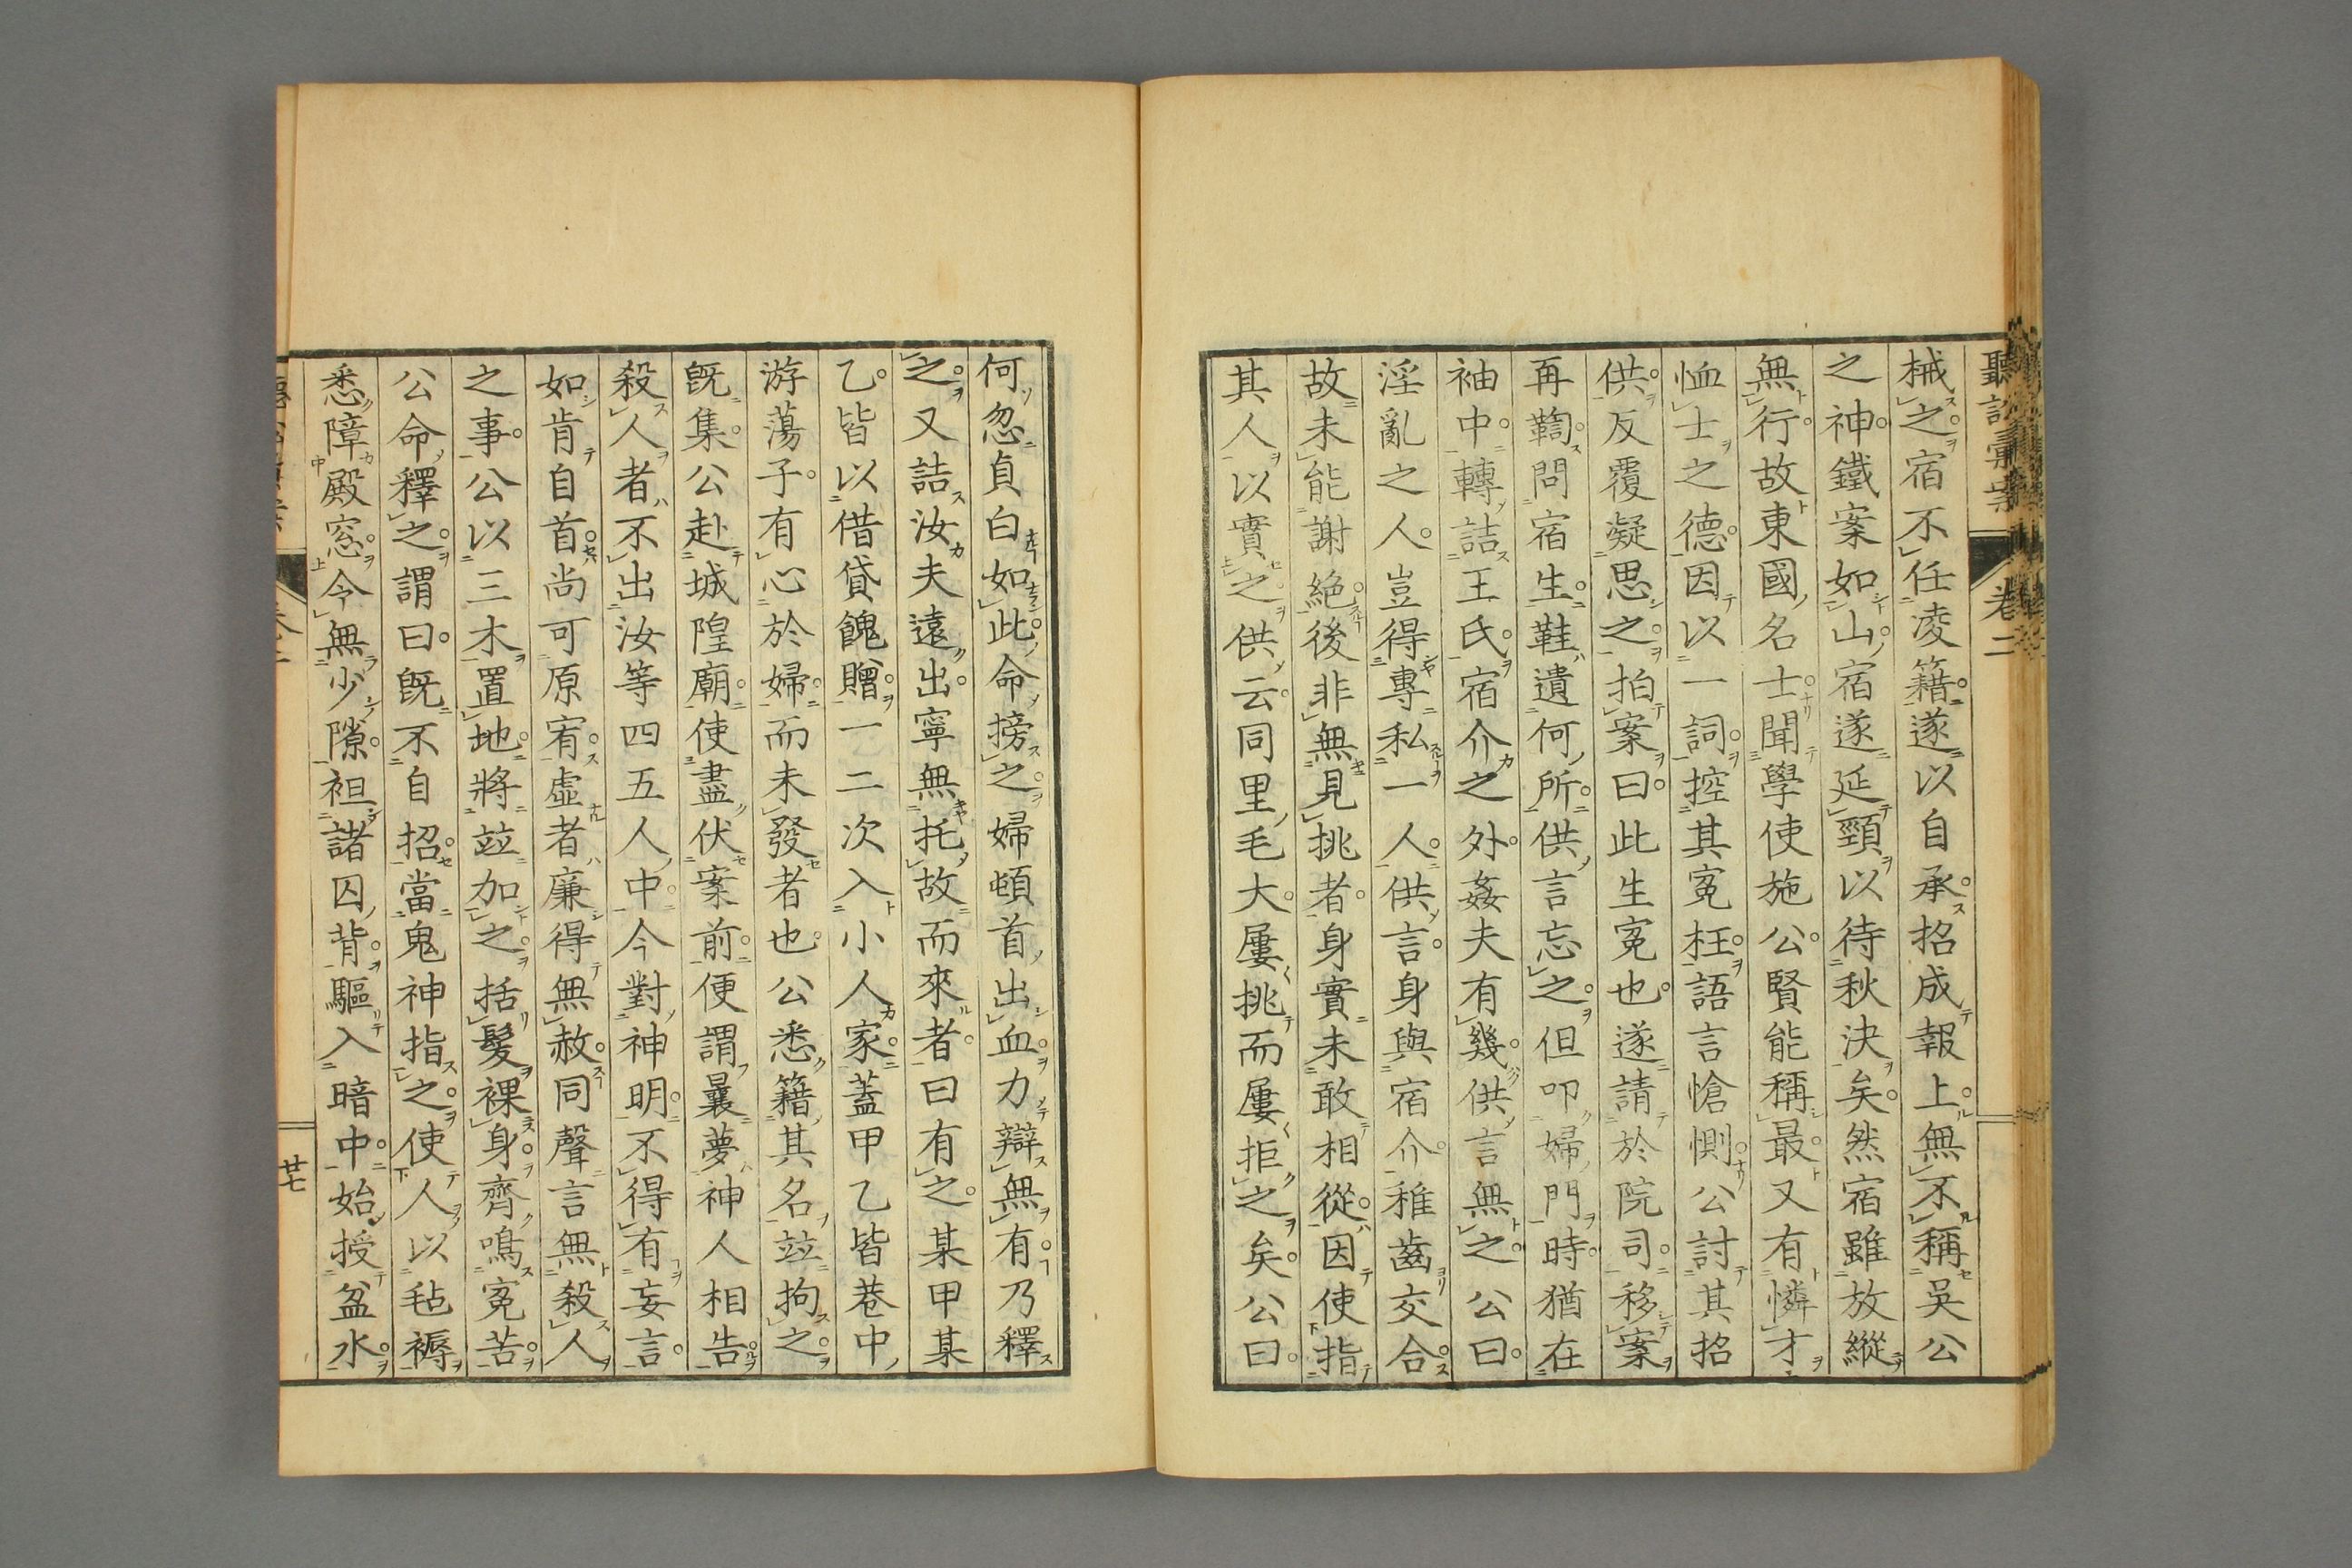 聽訟彙案 卷二
械之宿不任凌籍遂以自承招成報上無不稱吳公
之神鐵案如山宿遂延頸以待秋決矣然宿雖放縱
無行故東國名士聞學使施公賢能稱最又有憐才
恤士之德因以一詞控其冤枉語言愴惻公討其招
供反覆凝思之拍案曰此生冤也遂請於院司移案
再鞫問宿生鞋遺何所供言忘之但叩婦門時猶在
袖中轉詰王氏宿介之外姦夫有幾供言無之公曰
淫亂之人豈得專私一人供言身與宿介稚齒交合
故未能謝絕後非無見挑者身實未敢相從因使指
其人以實之供云同里毛大屢挑而屢拒之矣公曰
何忽貞白如此命搒之婦頓首出血力辯無有乃釋
之又詰汝夫遠出寧無托故而來者曰有之某甲某
乙皆以借貸餽贈一二次入小人家蓋甲乙皆巷中
游蕩子有心於婦而未發者也公悉籍其名竝拘之
既集公赴城隍廟使盡伏案前便謂曩夢神人相告
殺人者不出汝等四五人中今對神明不得有妄言
如肯自首尚可原宥虛者廉得無赦同聲言無殺人
之事公以三木置地將竝加之括髮裸身齊鳴冤苦
公命釋之謂曰既不自招當鬼神指之使人以毡褥
悉障殿窓令無少隙袒諸囚背驅入暗中始授盆水
廿七